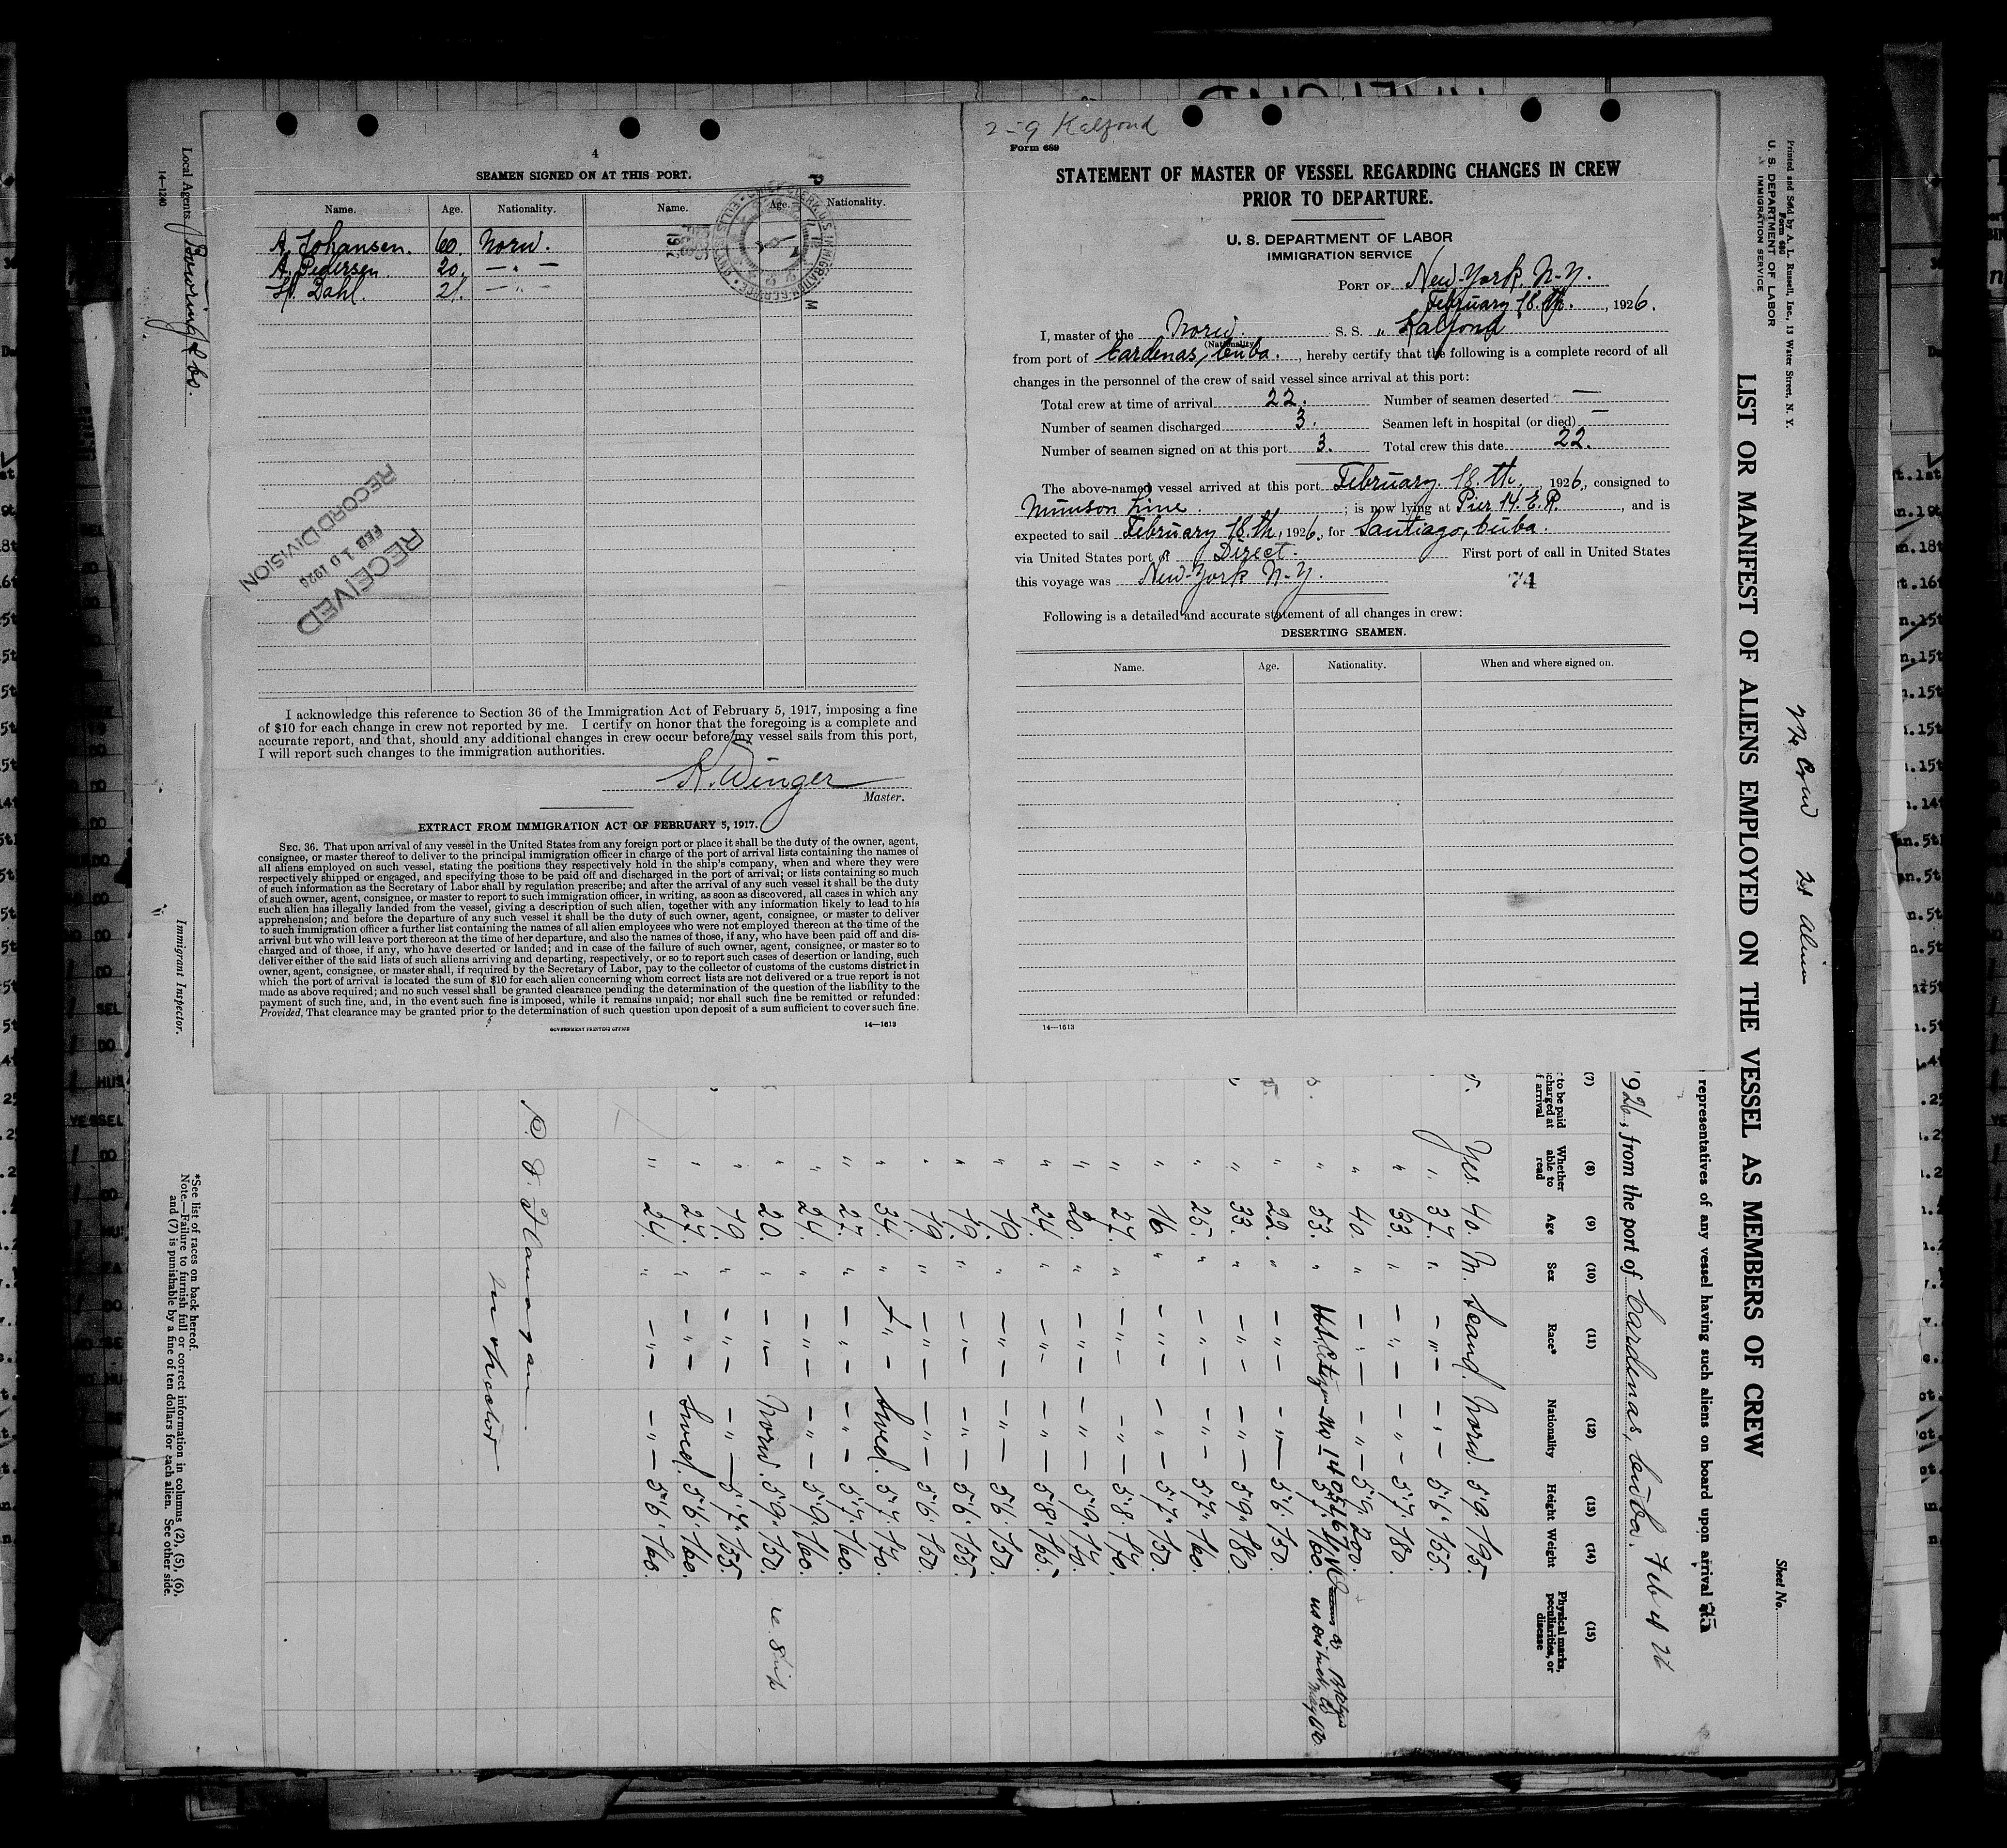 4
SEAMEN SIGNED ON AT THIS PORT.
Name. Age. Nationality. Name. Age. Nationality.
A. Johansen. 60. Norw.
A. Pedersen 20. — " —
H. Dahl. 21. — " —
RECEIVED
FEB 10 1926
RECORD DIVISION
I acknowledge this reference to Section 36 of the Immigration Act of February 5, 1917, imposing a fine
of $10 for each change in crew not reported by me. I certify on honor that the foregoing is a complete and
accurate report, and that, should any additional changes in crew occur before my vessel sails from this port,
I will report such changes to the immigration authorities.
K. Winger
Master.
EXTRACT FROM IMMIGRATION ACT OF FEBRUARY 5, 1917.
SEC. 36. That upon arrival of any vessel in the United States from any foreign port or place it shall be the duty of the owner, agent,
consignee, or master thereof to deliver to the principal immigration officer in charge of the port of arrival lists containing the names of
all aliens employed on such vessel, stating the positions they respectively hold in the ship's company, when and where they were
respectively shipped or engaged, and specifying those to be paid off and discharged in the port of arrival; or lists containing so much
of such information as the Secretary of Labor shall by regulation prescribe; and after the arrival of any such vessel it shall be the duty
of such owner, agent, consignee, or master to report to such immigration officer, in writing, as soon as discovered, all cases in which any
such alien has illegally landed from the vessel, giving a description of such alien, together with any information likely to lead to his
apprehension; and before the departure of any such vessel it shall be the duty of such owner, agent, consignee, or master to deliver
to such immigration officer a further list containing the names of all alien employees who were not employed thereon at the time of the
arrival but who will leave port thereon at the time of her departure, and also the names of those, if any, who have been paid off and dis-
charged and of those, if any, who have deserted or landed; and in case of the failure of such owner, agent, consignee, or master so to
deliver either of the said lists of such aliens arriving and departing, respectively, or so to report such cases of desertion or landing, such
owner, agent, consignee, or master shall, if required by the Secretary of Labor, pay to the collector of customs of the customs district in
which the port of arrival is located the sum of $10 for each alien concerning whom correct lists are not delivered or a true report is not
made as above required; and no such vessel shall be granted clearance pending the determination of the question of the liability to the
payment of such fine, and, in the event such fine is imposed, while it remains unpaid; nor shall such fine be remitted or refunded:
Provided, That clearance may be granted prior to the determination of such question upon deposit of a sum sufficient to cover such fine.
GOVERNMENT PRINTING OFFICE
14—1613
2-9 Kalfond
Form 689
STATEMENT OF MASTER OF VESSEL REGARDING CHANGES IN CREW
PRIOR TO DEPARTURE.
U. S. DEPARTMENT OF LABOR
IMMIGRATION SERVICE
PORT OF New-York, N-Y.
February 18.th., 1926.
I, master of the Norw. S. S. " Kalfond "
(Nationality)
from port of Cardenas, Cuba., hereby certify that the following is a complete record of all
changes in the personnel of the crew of said vessel since arrival at this port:
Total crew at time of arrival 22. Number of seamen deserted —
Number of seamen discharged 3. Seamen left in hospital (or died) —
Number of seamen signed on at this port 3. Total crew this date 22.
The above-named vessel arrived at this port February 18.th, 1926, consigned to
Munson Line ; is now lying at Pier 14. E.R., and is
expected to sail February 18.th, 1926., for Santiago, Cuba.
via United States port of Direct. First port of call in United States
this voyage was New-York N-Y.
74
Following is a detailed and accurate statement of all changes in crew:
DESERTING SEAMEN.
Name. Age. Nationality. When and where signed on.
14—1613
Printed and Sold by A. L. Russell, Inc., 13 Water Street, N. Y.
Form 680
U. S. DEPARTMENT OF LABOR
IMMIGRATION SERVICE
Sheet No.
LIST OR MANIFEST OF ALIENS EMPLOYED ON THE VESSEL AS MEMBERS OF CREW
representatives of any vessel having such aliens on board upon arrival
1926, from the port of Cardenas, Cuba. Feb 4 26
(7) (8) (9) (10) (11) (12) (13) (14) (15)
Whether able to read
Age
Sex
Race*
Nationality
Height
Weight
Physical marks, peculiarities, or disease
Yes. 40. M. Scand. Norw. 5'9. 195.
" 37. " — " — — " — 5'6. 155.
" 33. " — " — — " — 5'7. 180.
" 40. " — " — — " — 5'9. 200.
" 53. " US Citizen 160.
" 22. " — " — — " — 5'6. 150.
" 33. " — " — — " — 5'9. 180.
" 25. " — " — — " — 5'7. 160.
" 16. " — " — — " — 5'7. 150.
" 27. " — " — — " — 5'8. 170.
" 20. " — " — — " — 5'9. 170.
" 24. " — " — — " — 5'8. 165.
" 19. " — " — — " — 5'6. 150.
" 19. " — " — — " — 5'6. 155.
" 19. " — " — — " — 5'6. 150.
" 34. " — " — Swed. 5'7. 170.
" 27. " — " — — " — 5'7. 160.
" 24. " — " — — " — 5'9. 160.
" 20. " — " — Norw. 5'9. 150.
" 19. " — " — — " — 5'7. 155.
" 27. " — " — Swed. 5'6. 160.
" 24. " — " — — " — 5'6. 160.
Inspector
Local Agents Bowring & Co.
14—1240
Immigrant Inspector.
*See list of races on back hereof.
Note.—Failure to furnish full or correct information in columns (2), (5), (6),
and (7) is punishable by a fine of ten dollars for each alien. See other side.